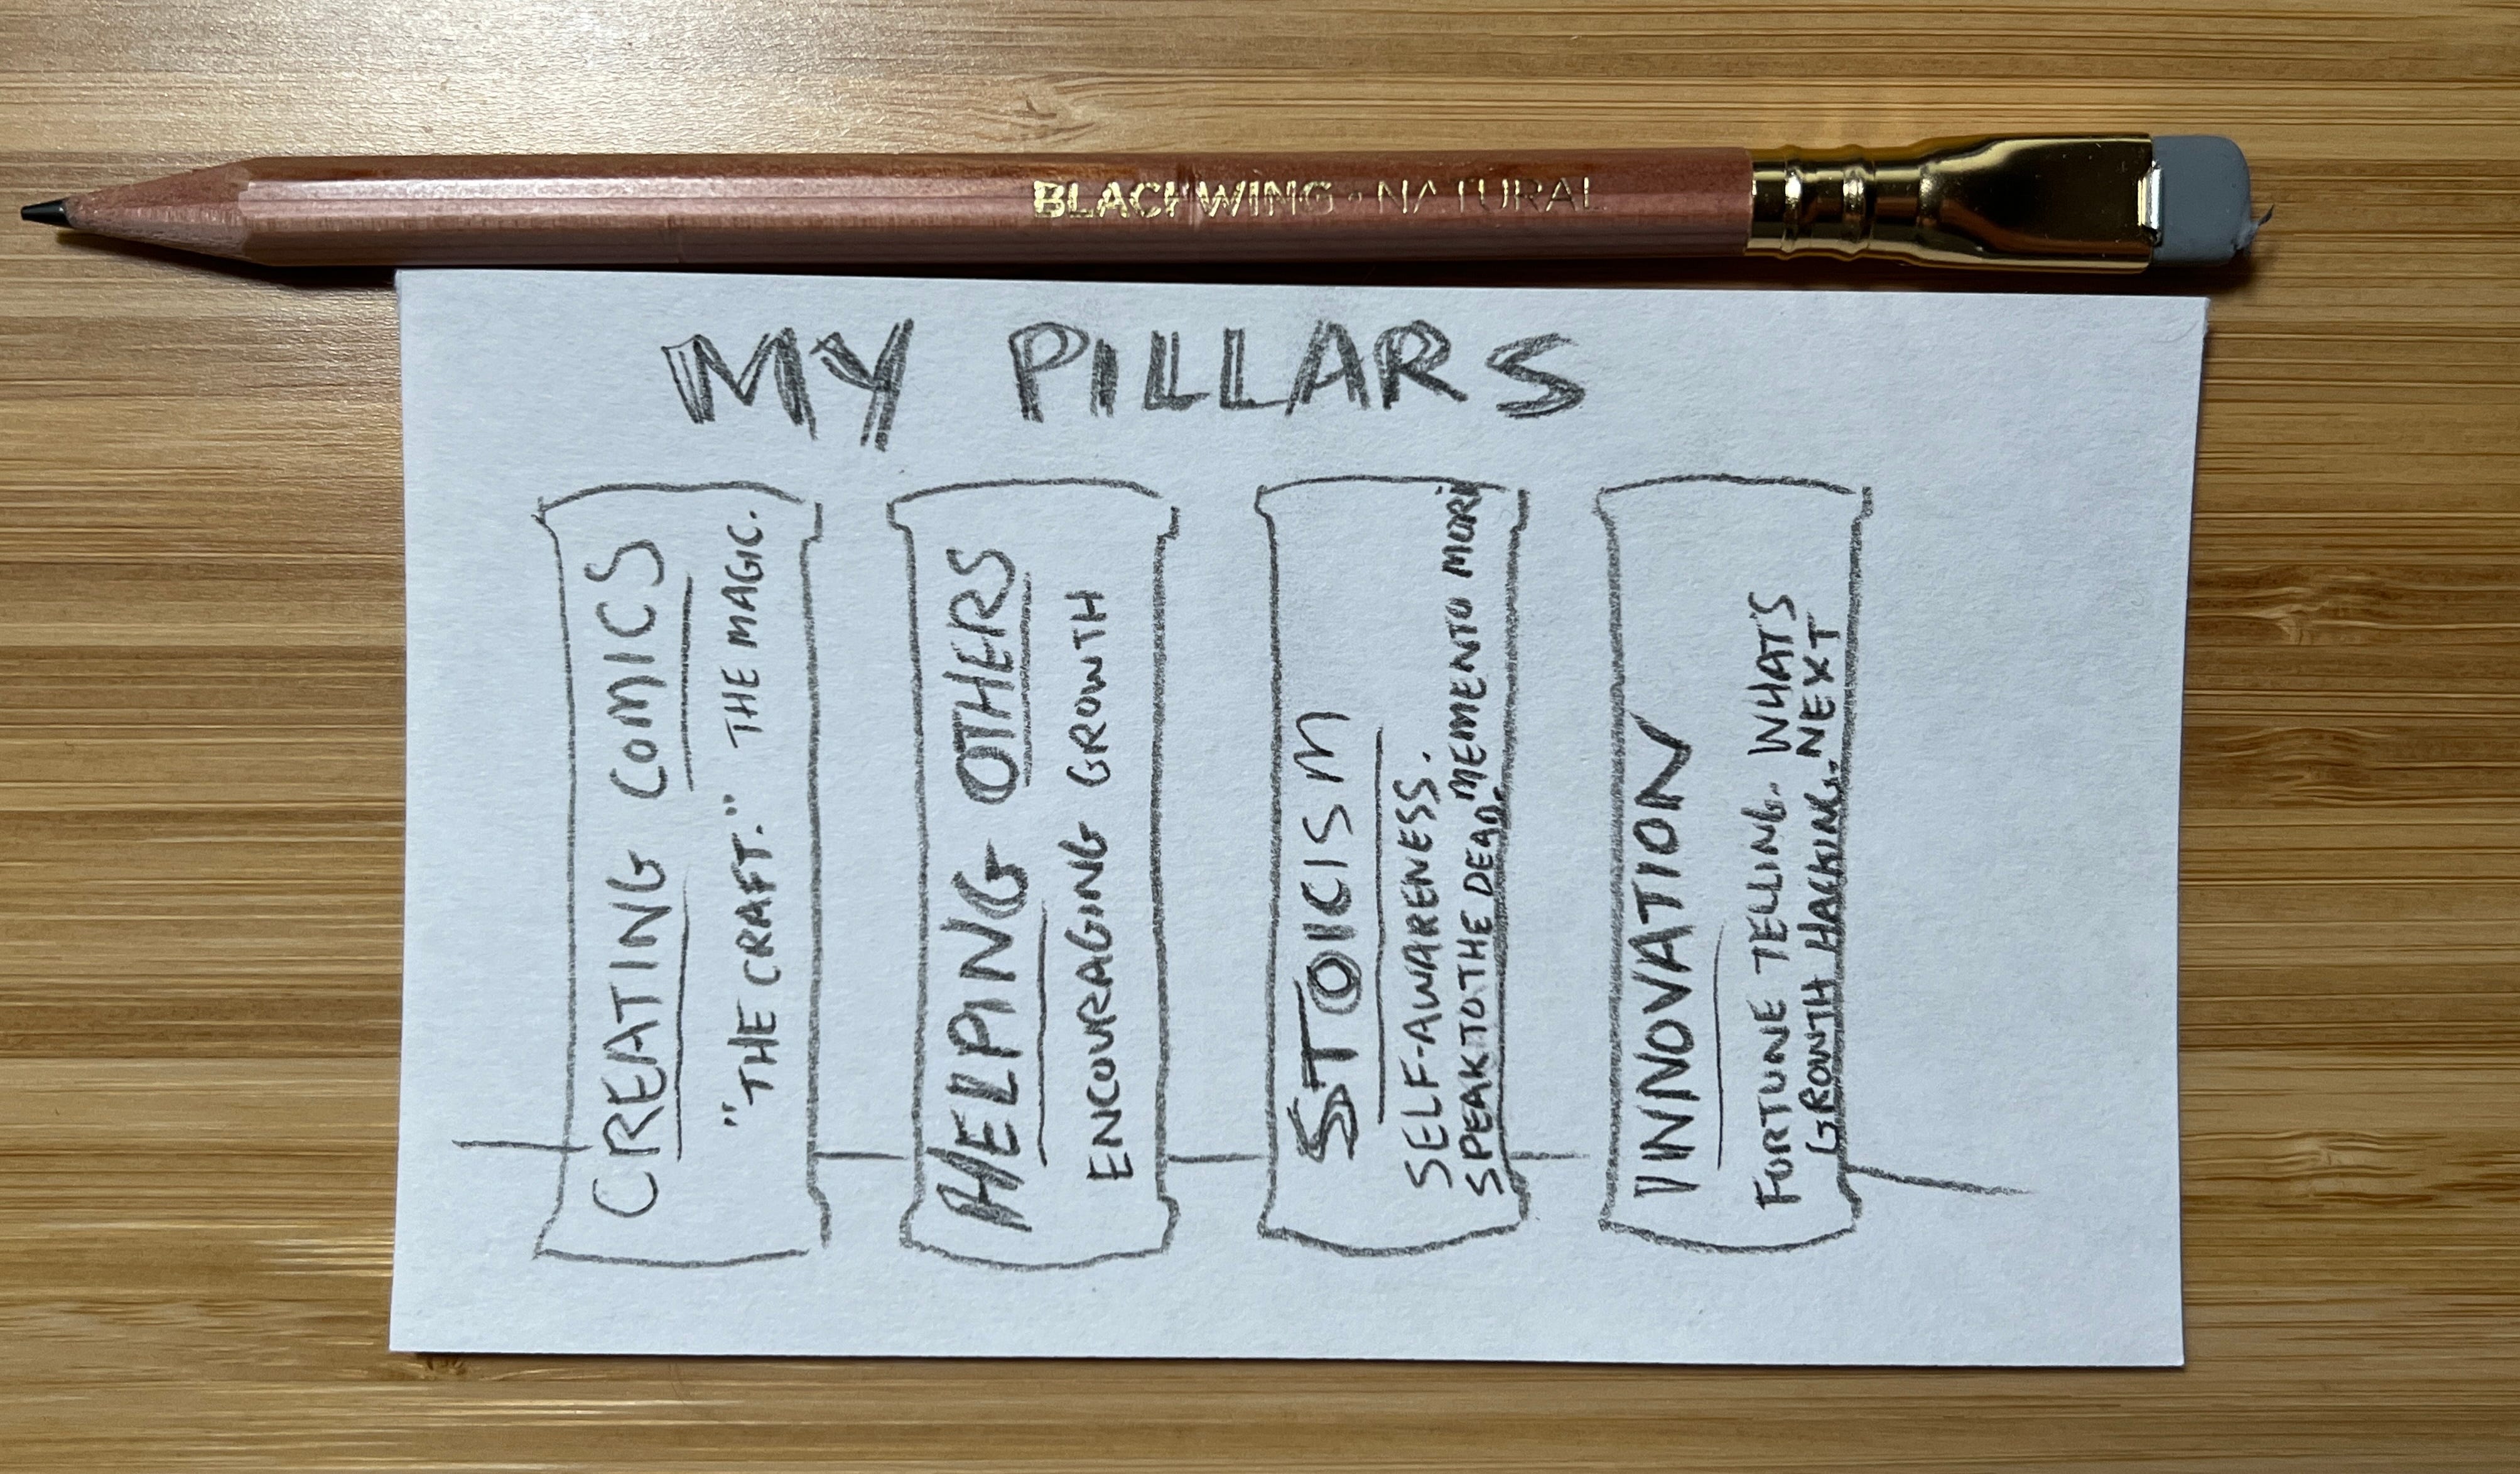 BLACKWING · NATURAL
MY PILLARS
CREATING COMICS
"THE CRAFT." THE MAGIC.
HELPING OTHERS
ENCOURAGING GROWTH
STOICISM
SELF-AWARENESS.
SPEAK TO THE DEAD. MEMENTO MORI
INNOVATION
FORTUNE TELLING. WHATS
GROWTH HACKING. NEXT